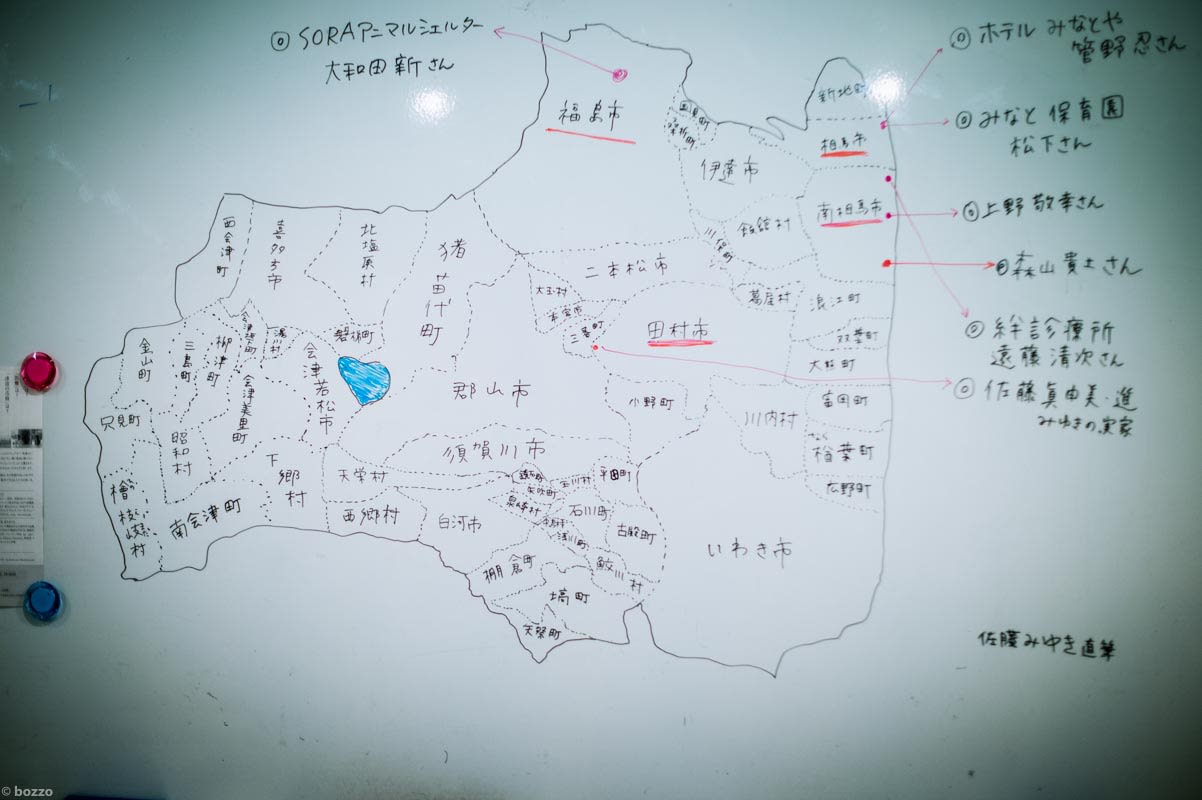 ◎ SORAアニマルシェルター
大和田 新さん
◎ ホテル みなとや
管野 忍さん
◎ みなと 保育園
松下さん
◎ 上野 敬幸さん
森山 貴士さん
◎ 絆診療所
遠藤 清次さん
◎ 佐藤 真由美・進
みゆきの実家
福島市
新地町
国見町
桑折町
相馬市
伊達市
南相馬市
飯舘村
川俣町
西会津町
喜多方市
北塩原村
猪苗代町
二本松市
大玉村
本宮市
三春町
田村市
葛尾村
浪江町
双葉町
大熊町
磐梯町
湯川村
金山町
三島町
柳津町
会津美里町
会津若松市
郡山市
小野町
川内村
富岡町
楢葉町
広野町
只見町
昭和村
檜枝岐村
南会津町
下郷村
須賀川市
天栄村
西郷村
白河市
矢吹町
泉崎村
玉川村
平田町
石川町
浅川町
古殿町
棚倉町
鮫川村
塙町
矢祭町
いわき市
佐藤みゆき直筆
© bozzo